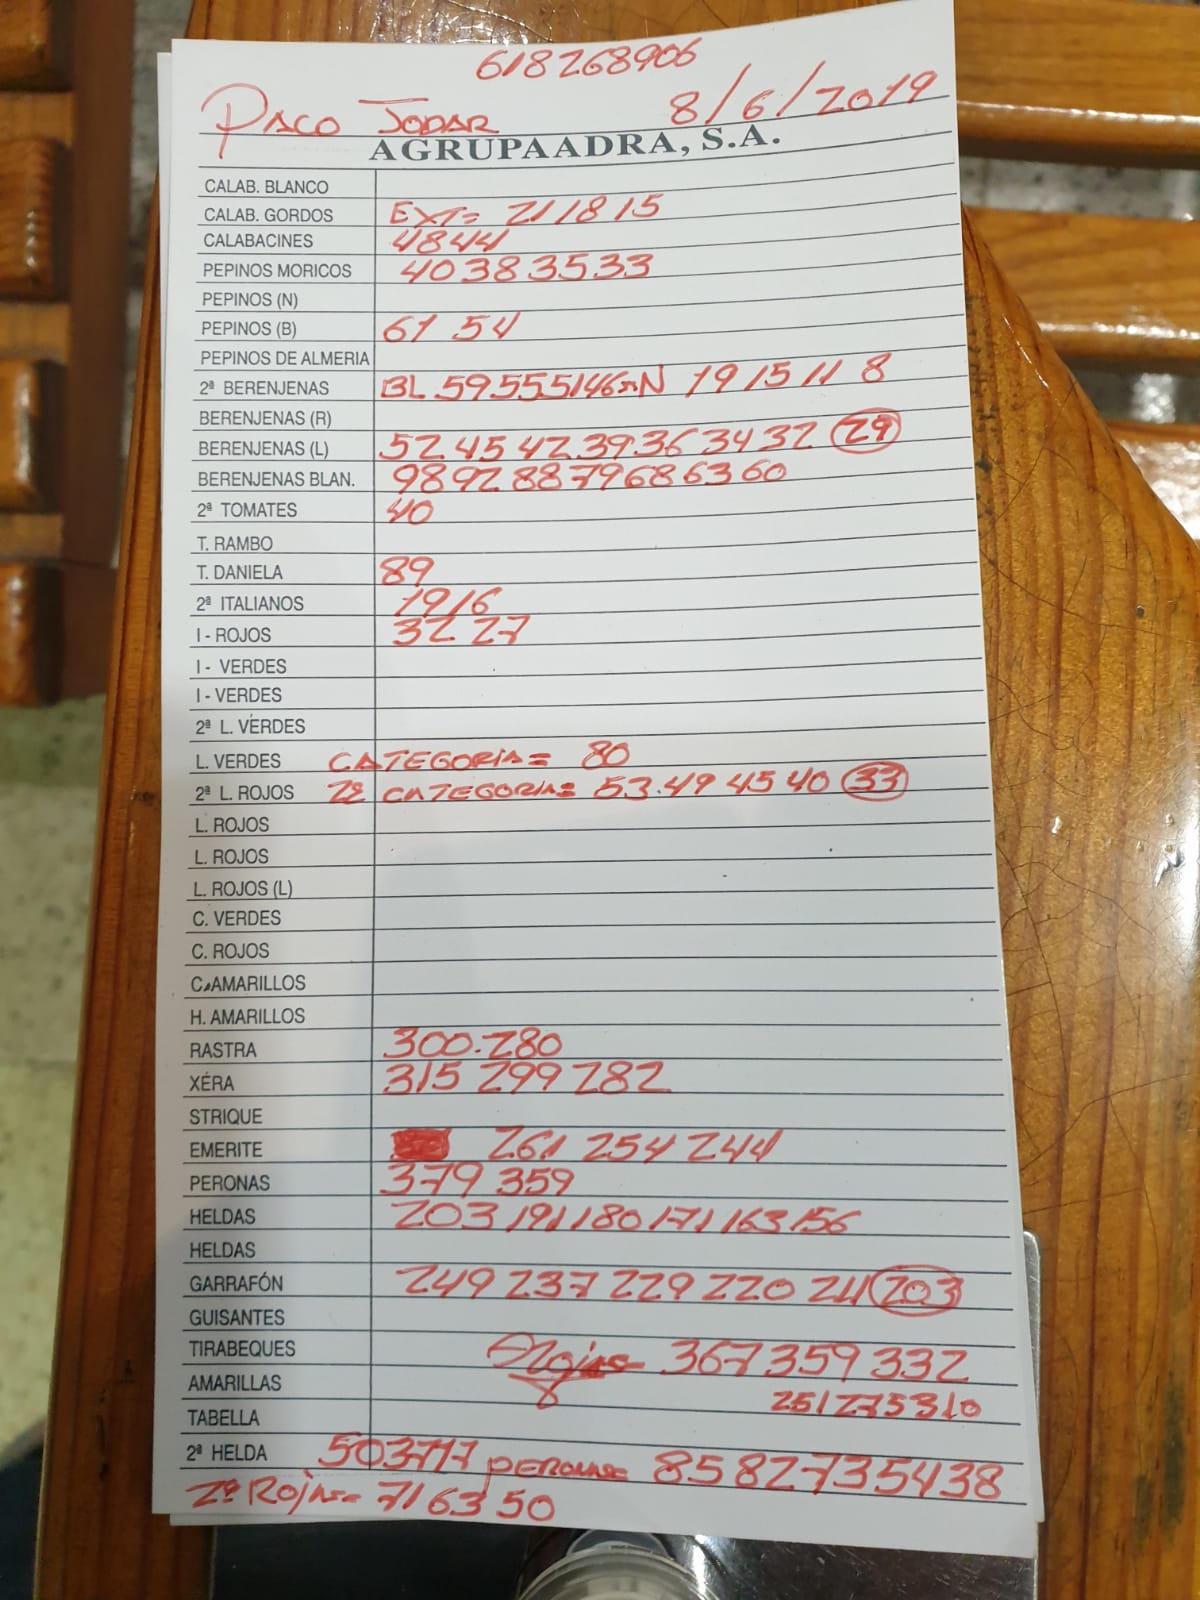 618268906
PACO JODAR 8/6/2019
AGRUPAADRA, S.A.
CALAB. BLANCO
CALAB. GORDOS EXT= 21 18 15
CALABACINES 48 44
PEPINOS MORICOS 40 38 35 33
PEPINOS (N)
PEPINOS (B) 61 54
PEPINOS DE ALMERIA
2ª BERENJENAS BL 59.55.51 46 N 19 15 11 8
BERENJENAS (R)
BERENJENAS (L) 52 45 42 39.36 34 32 29
BERENJENAS BLAN. 98 92 88 79 68 63 60
2ª TOMATES 40
T. RAMBO
T. DANIELA 89
2ª ITALIANOS 19 16
I - ROJOS 32 27
I - VERDES
I - VERDES
2ª L. VERDES
L. VERDES CATEGORIA= 80
2ª L. ROJOS 2ª CATEGORIA= 53.49 45 40 33
L. ROJOS
L. ROJOS
L. ROJOS (L)
C. VERDES
C. ROJOS
C. AMARILLOS
H. AMARILLOS
RASTRA 300.280
XÉRA 315 299 282
STRIQUE
EMERITE 261 254 244
PERONAS 379 359
HELDAS 203 191 180 171 163 156
HELDAS
GARRAFÓN 249 237 229 220 211 203
GUISANTES
TIRABEQUES Rojas 367 359 332
AMARILLAS 251 275 310
TABELLA
2ª HELDA 50 37 17 PERONAS= 85 82 73 54 38
2ª Rojas= 71 63 50